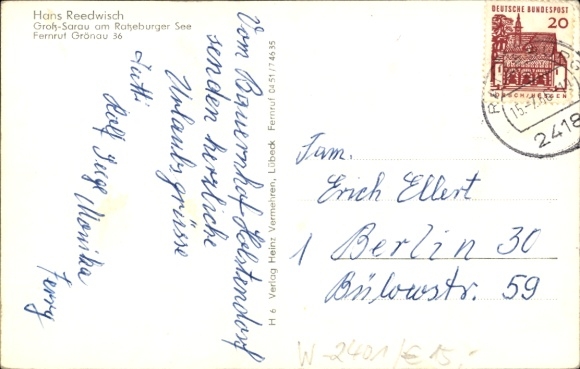 Hans Reedwisch
Groß-Sarau am Ratzeburger See
Fernruf Grönau 36
Vom Bauernhof Holstendorf
senden herzliche
Urlaubsgrüsse
Rolf Inge Monika
Jenny
H 6 Verlag Heinz Vermehren, Lübeck Fernruf 0451/74635
DEUTSCHE BUNDESPOST
20
2418
Fam.
Erich Ellert
1 Berlin 30
Bülowstr. 59
W-2401/€15,-